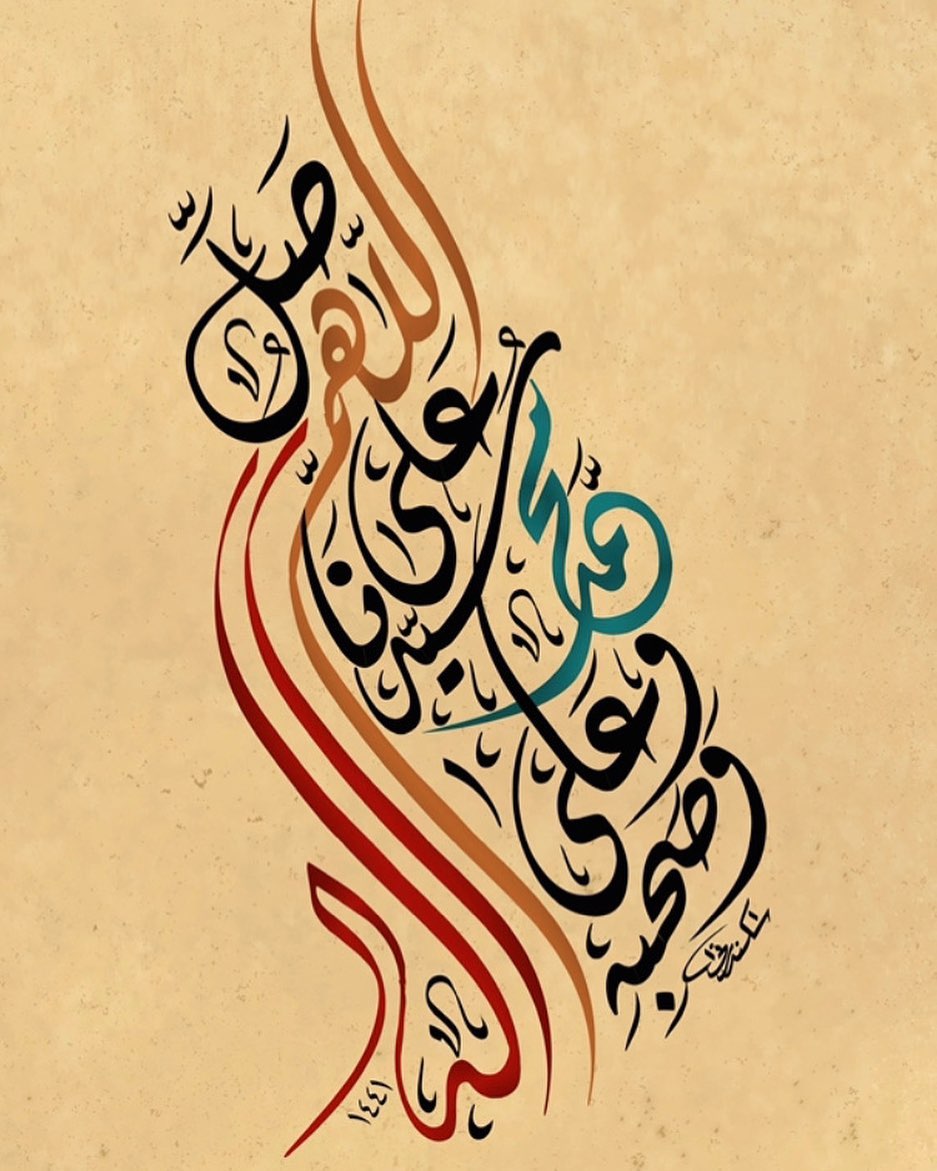 اللّهم صلّ
على سيّدنا
محمّد
وعلى اله
وصحبه
١٤٤١